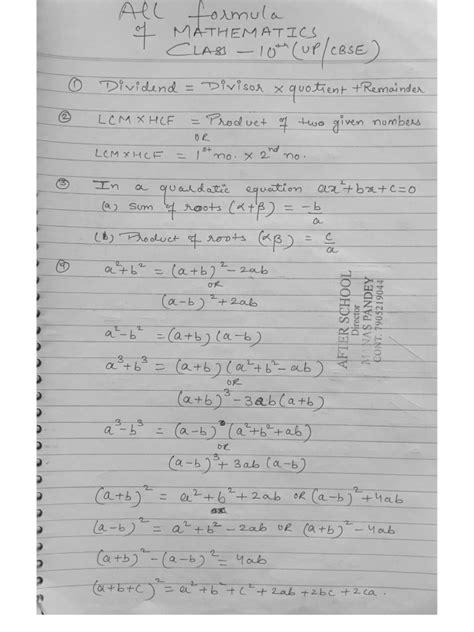 All formula
of MATHEMATICS
CLASS - 10th (UP/CBSE)
① Dividend = Divisor × quotient + Remainder
② LCM × HCF = Product of two given numbers
OR
LCM × HCF = 1st no. × 2nd no.
③ In a quardatic equation ax²+bx+c=0
(a) Sum of roots (α+β) = -b/a
(b) Product of roots (αβ) = c/a
④ a²+b² = (a+b)²-2ab
OR
(a-b)²+2ab
a²-b² = (a+b) (a-b)
a³+b³ = (a+b) (a²+b²-ab)
OR
(a+b)³-3ab(a+b)
a³-b³ = (a-b) (a²+b²+ab)
OR
(a-b)³+3ab(a-b)
(a+b)² = a²+b²+2ab OR (a-b)²+4ab
(a-b)² = a²+b²-2ab OR (a+b)²-4ab
(a+b)²-(a-b)² = 4ab
(a+b+c)² = a²+b²+c²+2ab+2bc+2ca.
AFTER SCHOOL
Director
MANAS PANDEY
CONT. 7905219044